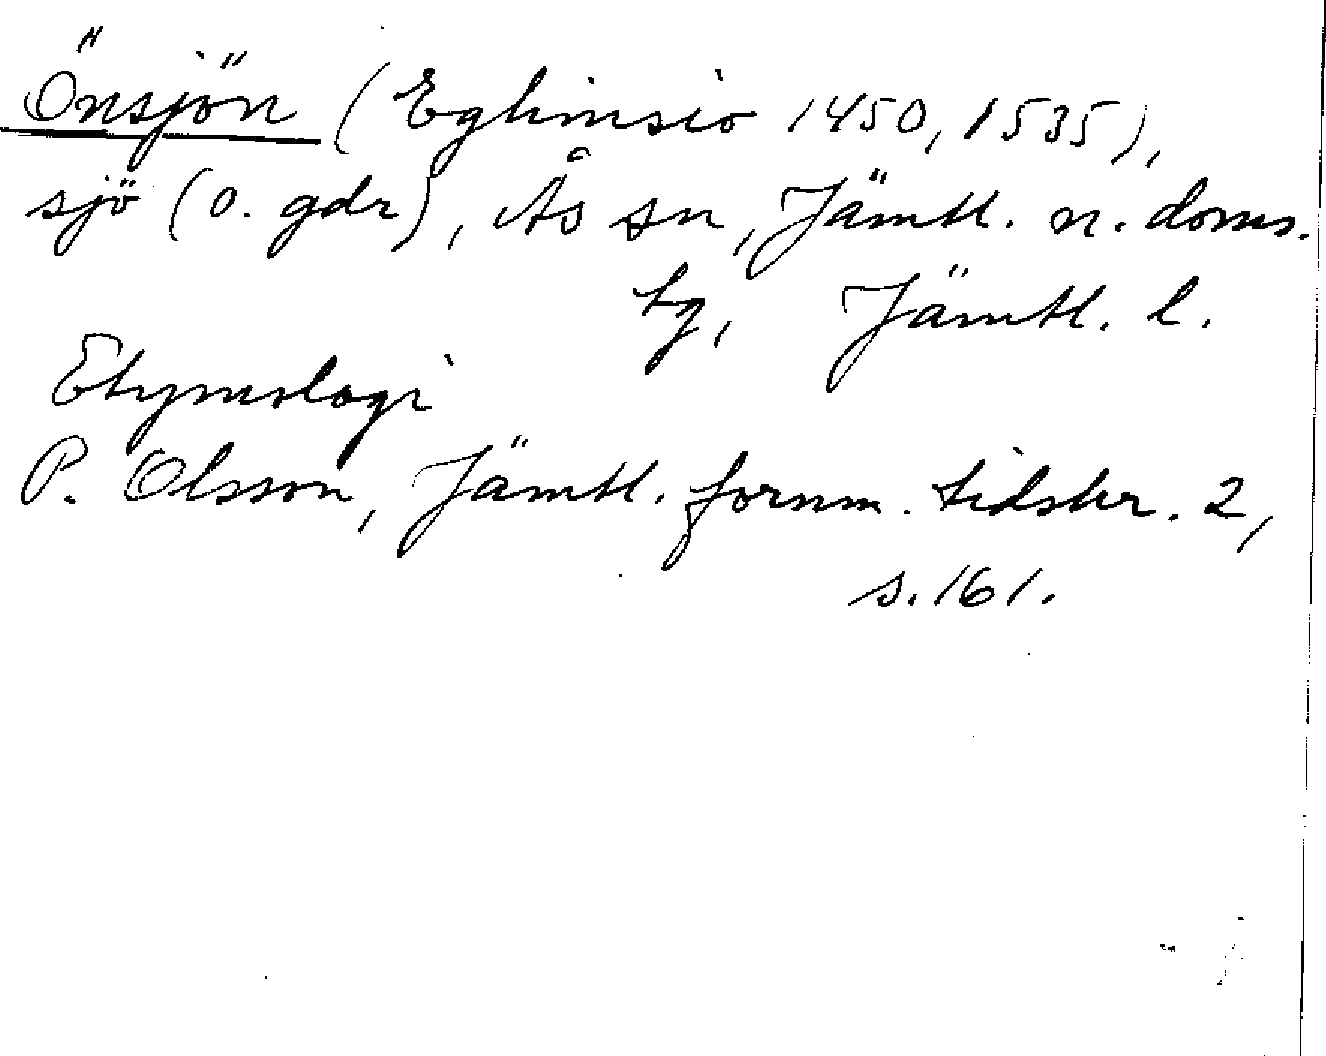 Önsjön (Eghinsio 1450, 1535),
sjö (o. gdr), Ås sn, Jämtl. n. doms.
tg, Jämtl. l.
Etymologi
P. Olsson, Jämtl. fornm. tidskr. 2,
s. 161.